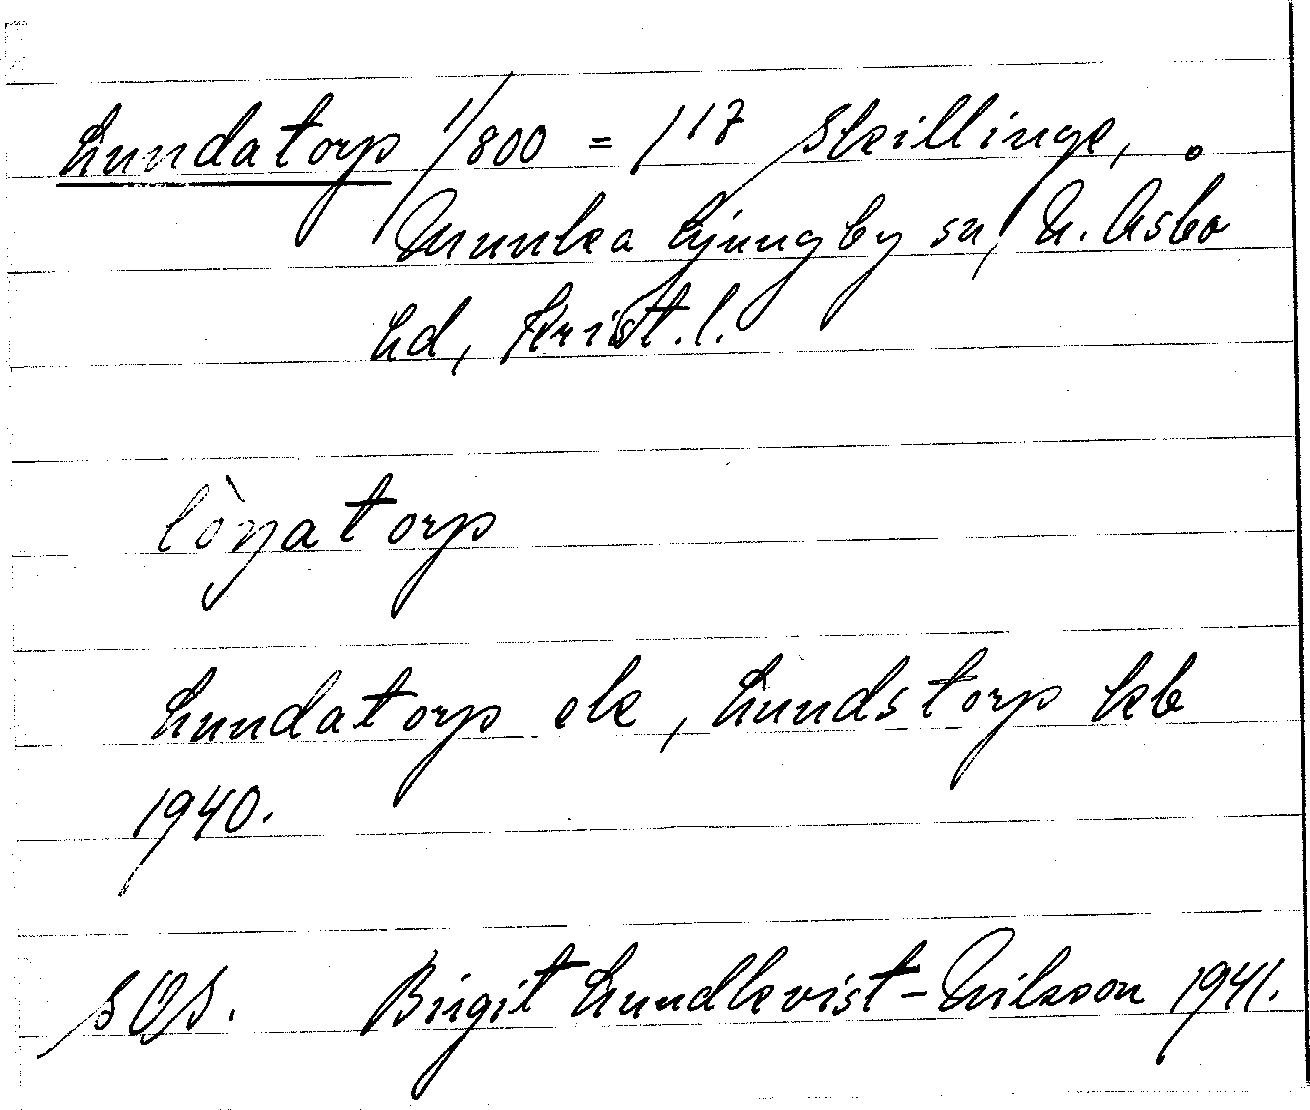 Lundatorp 1/800 = 1 17 Skillinge,
Munka Ljungby sn, N. Åsbo
hd, Krist. l.
lòŋatorp
Lundatorp ek, Lundstorp kb
1940.
SOS. Birgit Lundkvist-Nilsson 1941.